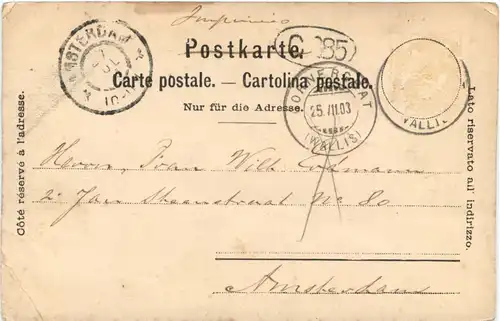 Imprimés
Postkarte.
Carte postale. — Cartolina postale.
Nur für die Adresse.
Côté réservé à l'adresse.
Lato riservato all' indirizzo.
AMSTERDAM
25.VII.03
(WALLIS)
WALLIS
Herrn, Frau Wilh.
2e Jan Steenstraat No 80
Amsterdam